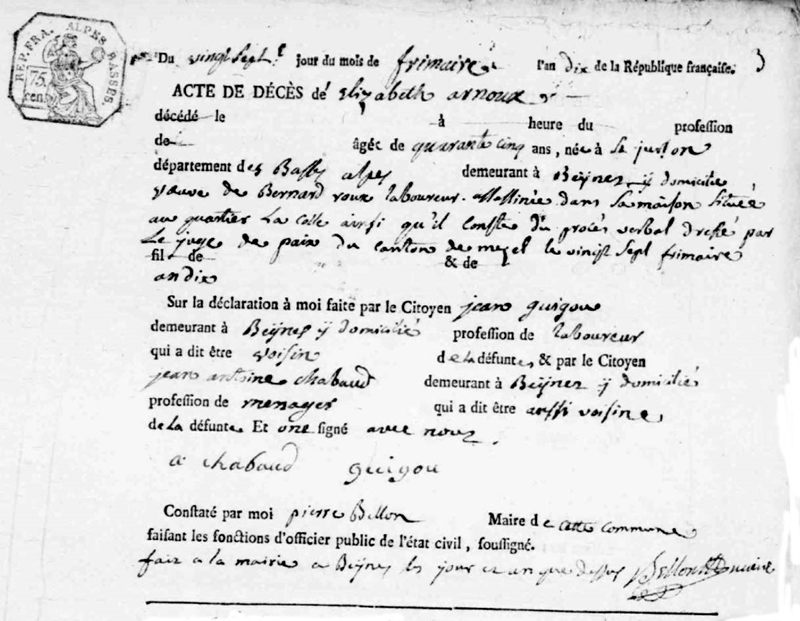 REP. FRA. ALPES BASSES.
75 cen.
Du vingt Sept.e jour du mois de frimaire l'an dix de la République française. 3
ACTE DE DÉCÈS de Elizabeth arnoux
décédé le à heure du profession
de âgée de quarante cinq ans, née à St jurson
département des Basses alpes demeurant à Beÿnes ÿ domiciliée
veuve de Bernard roux laboureur. assassinée dans sa maison située
au quartier La Colle ainsi qu'il conste du procés verbal dressé par
Le juge de paix du canton de mezel le vinist Sept frimaire
fil de & de
an dix
Sur la déclaration à moi faite par le Citoyen jean guigou
demeurant à Beÿnes ÿ domicilié profession de laboureur
qui a dit être voisin de la défunte, & par le Citoyen
jean antoine chabaud demeurant à Beÿnes ÿ domicilié
profession de menager qui a dit être aussi voisin
de la défunte Et ont signé avec nous.
a chabaud guigou
Constaté par moi pierre Bellon Maire de cette commune
faisant les fonctions d'officier public de l'état civil, soussigné.
fait a la mairie a Beÿnes les jour et an que dessus Bellon maire